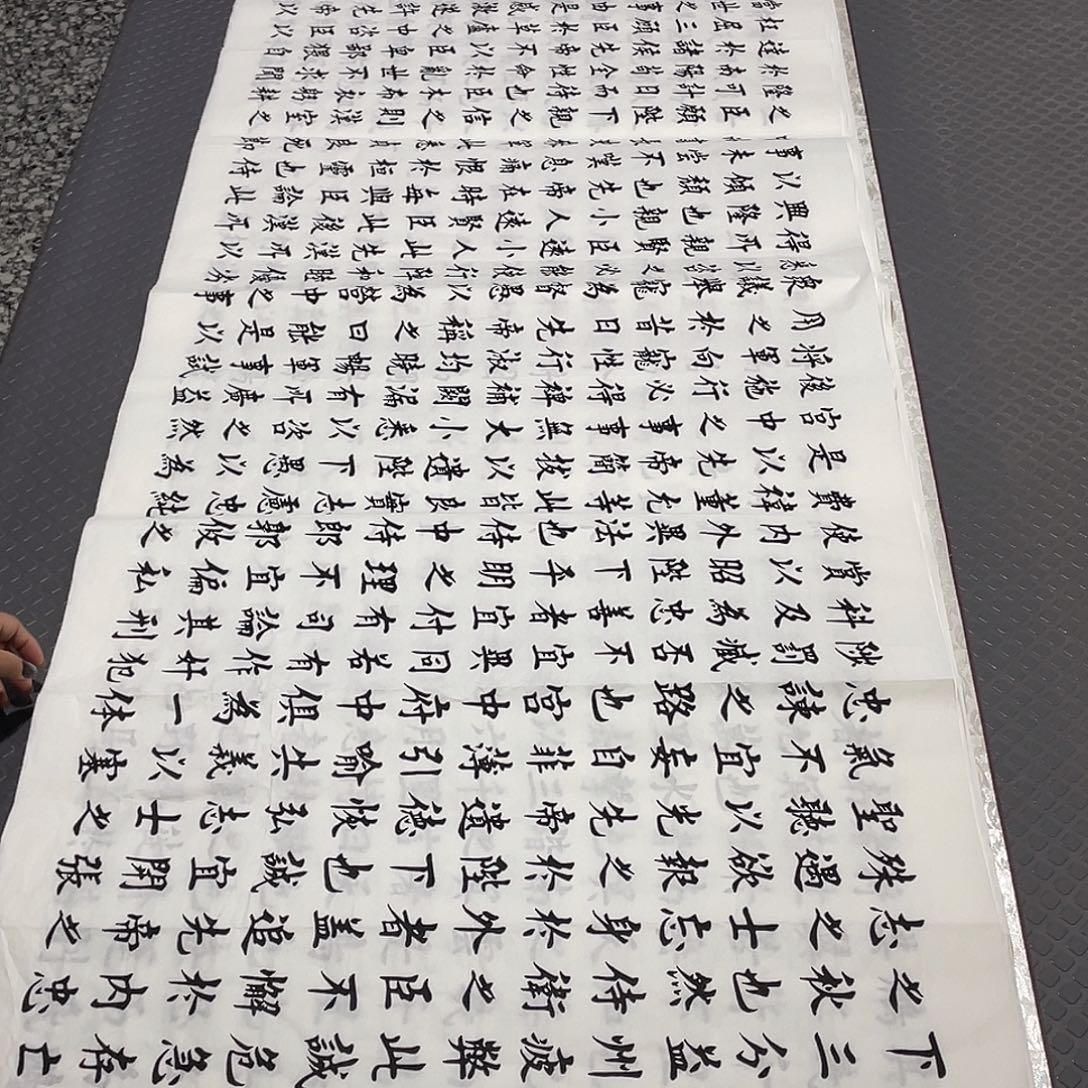 下三分益州疲弊此誠危急存亡
之秋也然侍衛之臣不懈於內忠
志之士忘身於外者蓋追先帝之
殊遇欲報之於陛下也誠宜開張
聖聽以光先帝遺德恢弘志士之
氣不宜妄自菲薄引喻失義以塞
忠諫之路也宮中府中俱為一体
陟罰臧否不宜異同若有作奸犯
科及為忠善者宜付有司論其刑
賞以昭陛下平明之理不宜偏私
使內外異法也侍中侍郎郭攸之
費禕董允等此皆良實志慮忠純
是以先帝簡拔以遺陛下愚以為
宮中之事事無大小悉以咨之然
後施行必得裨補闕漏有所廣益
將軍向寵性行淑均曉暢軍事試
用之於昔日先帝稱之曰能是以
衆議舉寵為督愚以為營中之事
悉以咨之必能使行陣和睦優劣
得所親賢臣遠小人此先漢所以
興隆也親小人遠賢臣此後漢所
以傾頹也先帝在時每與臣論此
事未嘗不嘆息痛恨於桓靈也侍
之臣願陛下親之信之則漢室之
隆可計日而待也臣本布衣躬耕
於南陽苟全性命於亂世不求聞
達於諸侯先帝不以臣卑鄙猥自
枉屈三顧臣於草廬之中咨臣以
當世之事由是感激遂許先帝以